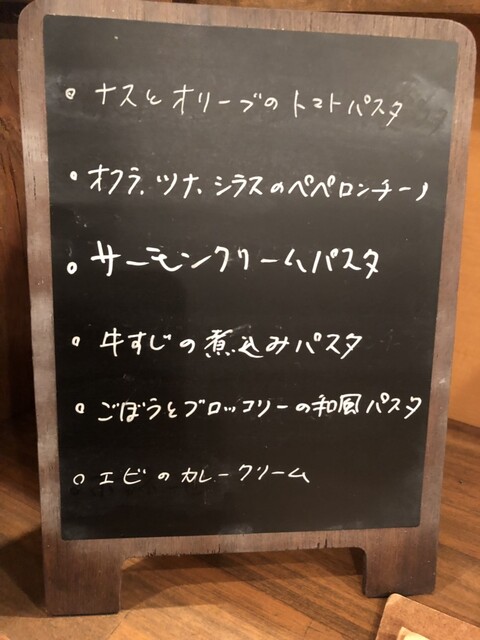 ナスとオリーブのトマトパスタ
オクラ、ツナ、シラスのペペロンチーノ
サーモンクリームパスタ
牛すじの煮込みパスタ
ごぼうとブロッコリーの和風パスタ
エビのカレークリーム